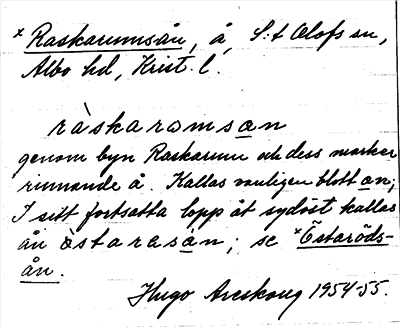 × Raskarumsån, å, S:t Olofs sn,
Albo hd, Krist. l.
ràskaromsan
genom byn Raskarum och dess marker
rinnande å. Kallas vanligen blott an;
I sitt fortsatta lopp åt sydöst kallas
ån òstarasán; se ×Östaröds-
ån.
Hugo Areskoug 1954-55.